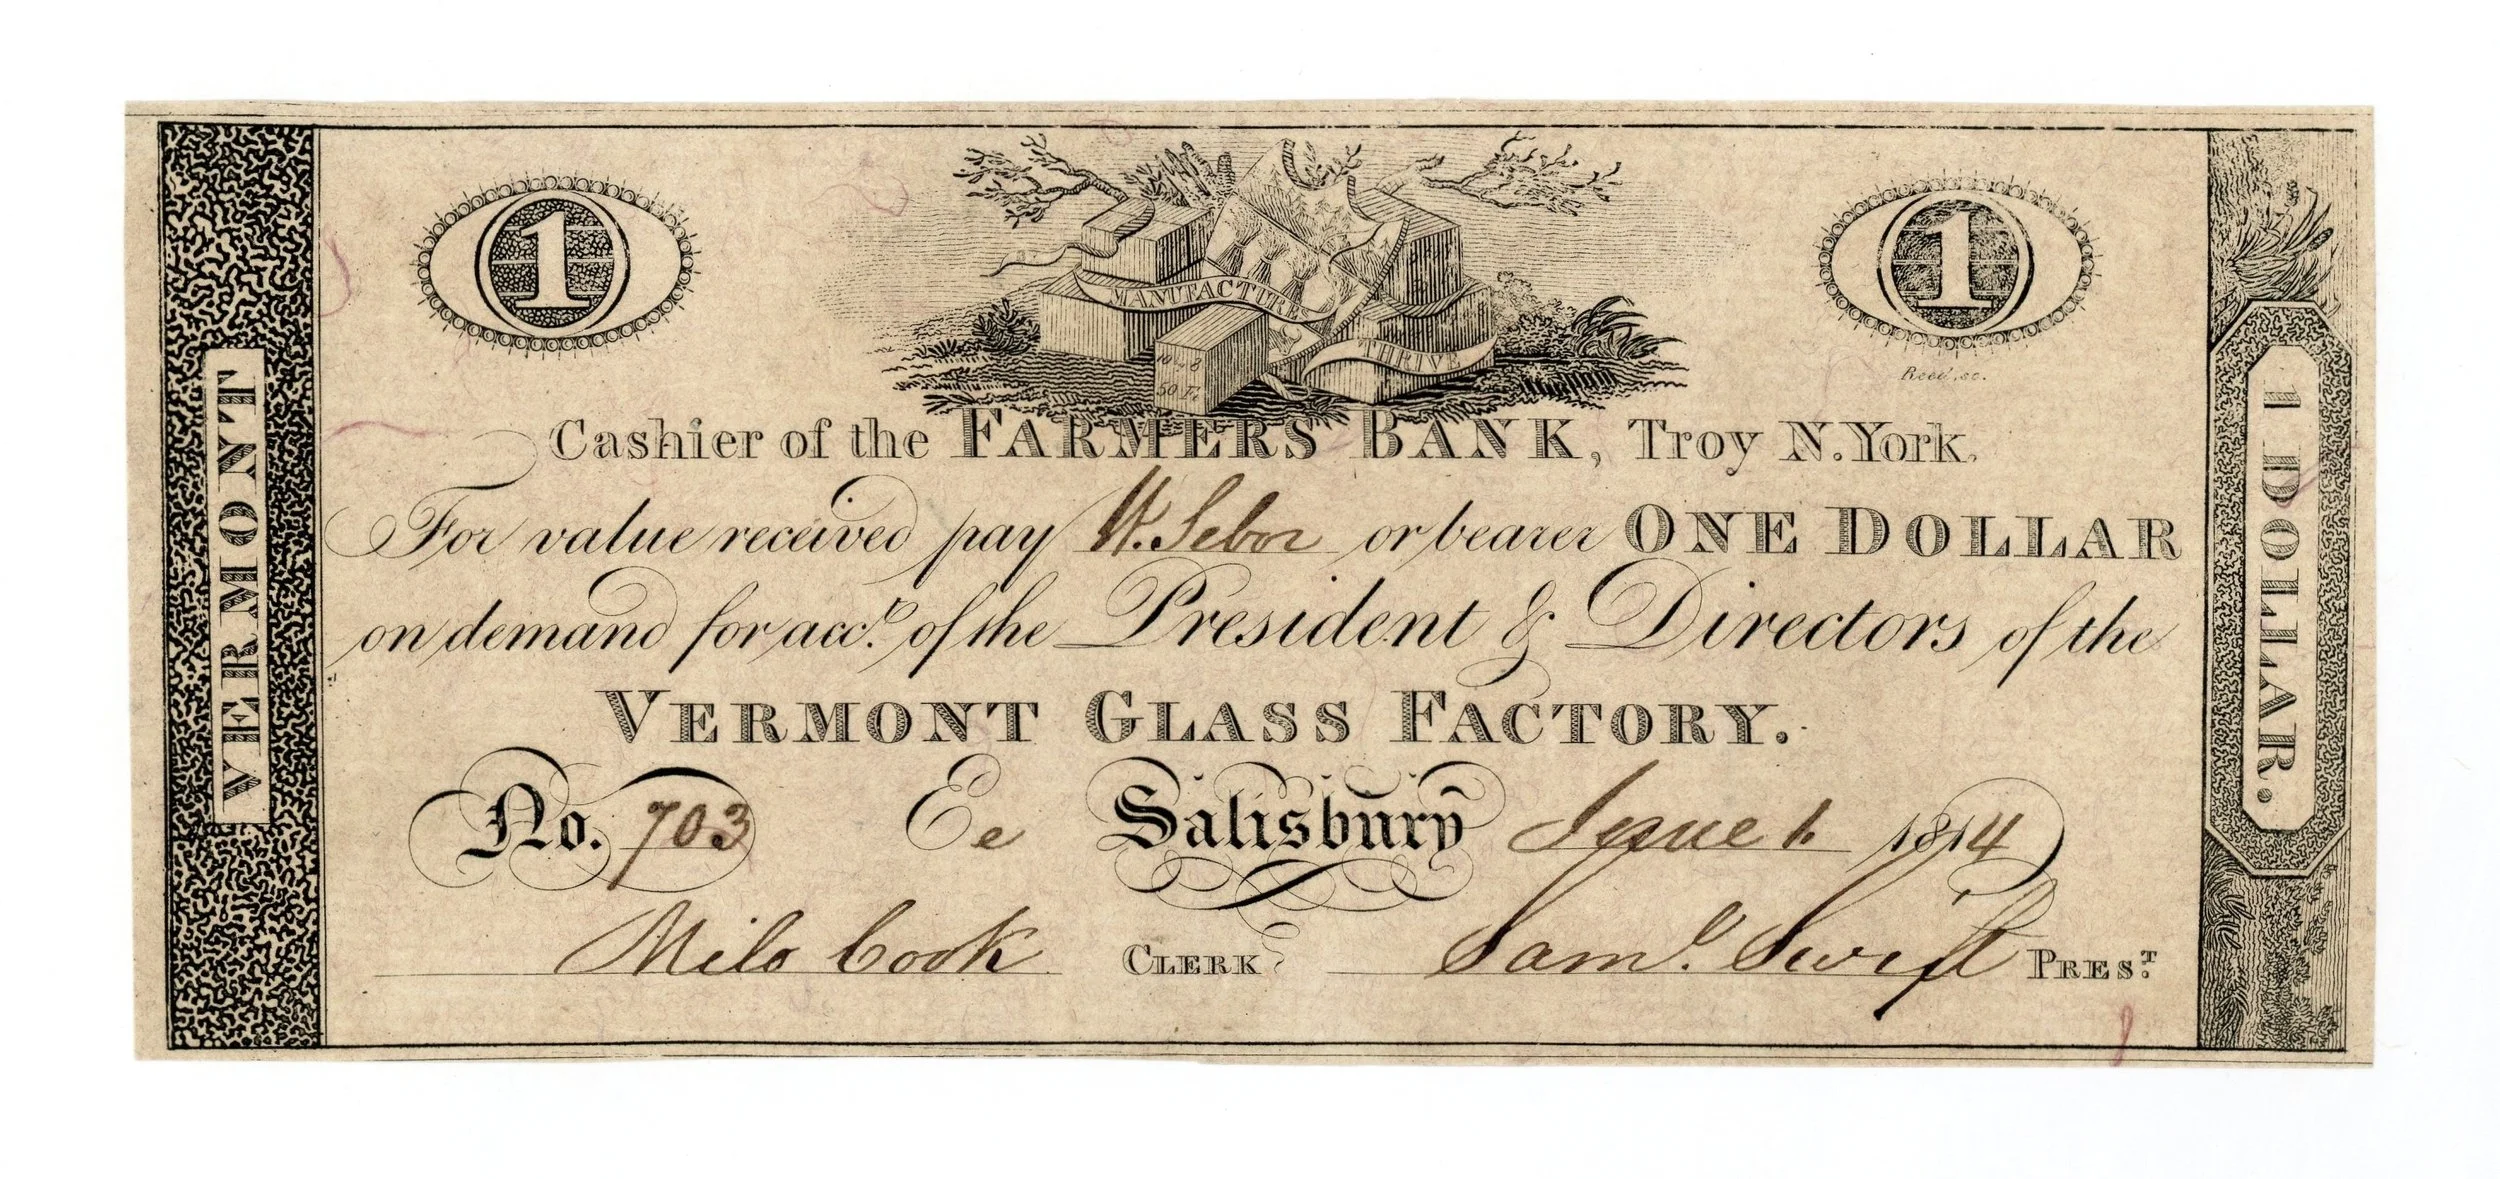 1
1
MANUFACTURES
THRIVE
Reed, sc.
Cashier of the FARMERS BANK, Troy N.York.
For value received pay W. Sebor or bearer ONE DOLLAR
on demand for acct. of the President & Directors of the
VERMONT GLASS FACTORY.
No. 703 Ee Salisbury June 1. 1814
Milo Cook CLERK Saml. Swift PREST.
VERMONT
1 DOLLAR.